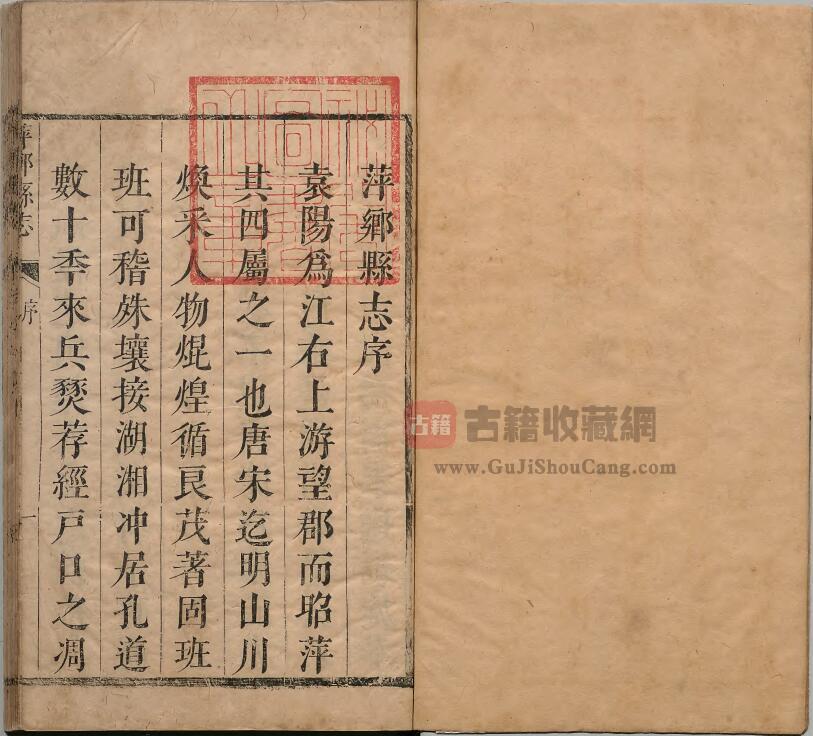 萍鄉縣志序
袁陽爲江右上游望郡而昭萍
其四屬之一也唐宋迄明山川
煥采人物焜煌循良茂著固班
班可稽殊壤接湖湘冲居孔道
數十季來兵燹荐經戸口之凋
萍鄉縣志
序
一
古籍
古籍收藏網
www.GuJiShouCang.com